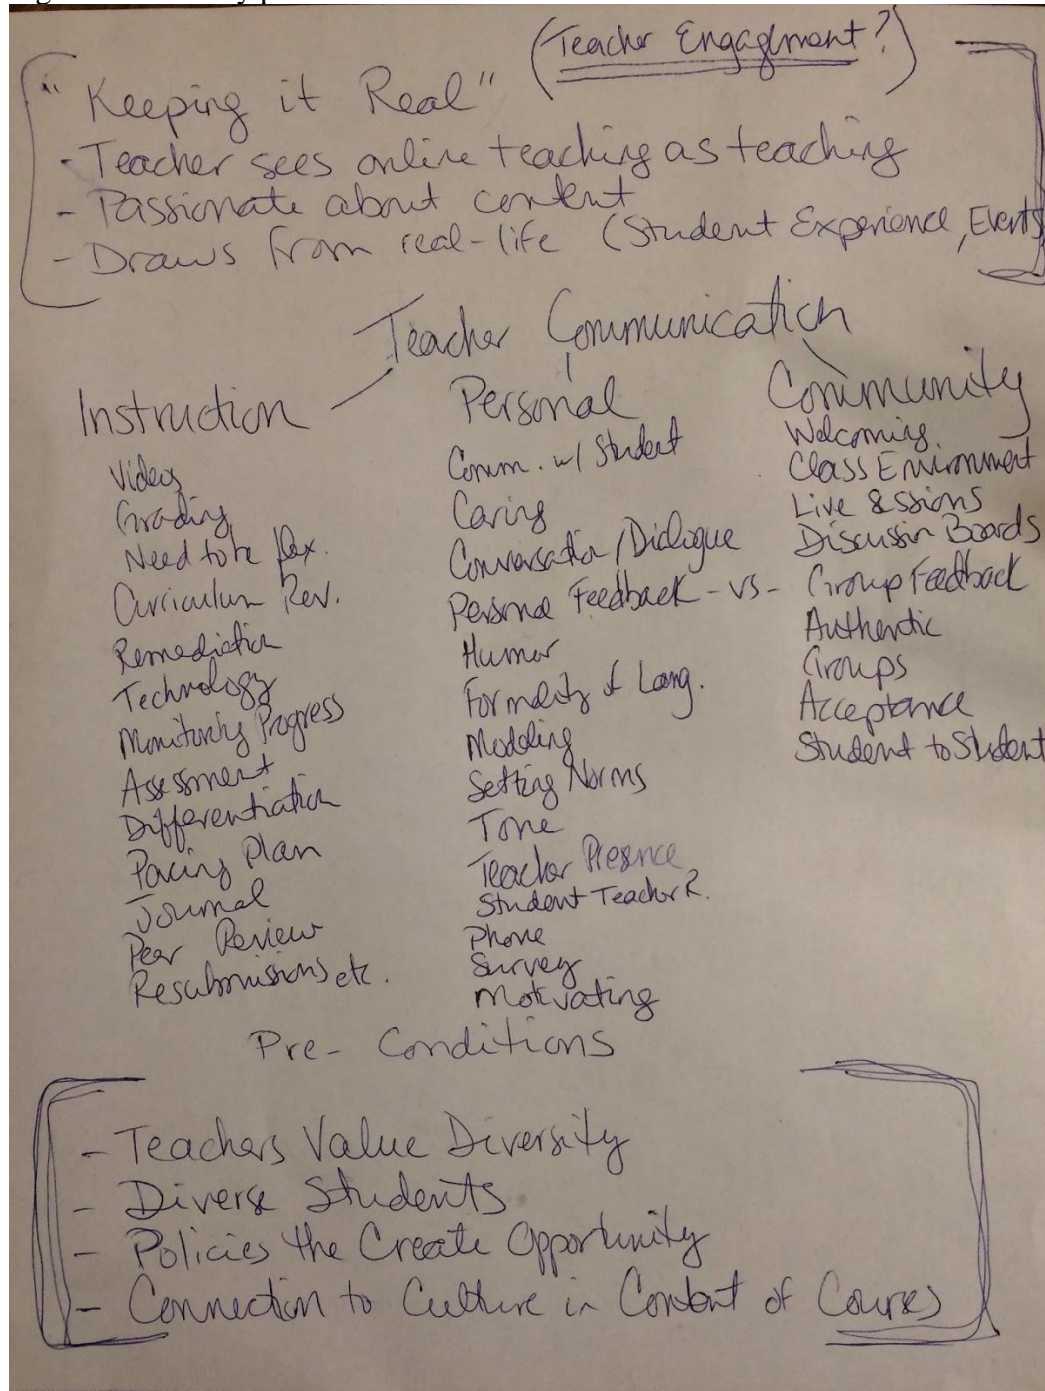 (Teacher Engagement?)
"Keeping it Real"
- Teacher sees online teaching as teaching
- Passionate about content
- Draws from real-life (Student Experience, Events
Teacher Communication
Instruction
Video
Grading
Need to be flex.
Curriculum Rev.
Remediation
Technology
Monitoring Progress
Assessment
Differentiation
Pacing Plan
Journal
Peer Review
Resubmissions etc.
Personal
Comm. w/ Student
Caring
Conversation/Dialogue
Personal Feedback - vs -
Humor
Formality of Lang.
Modeling
Setting Norms
Tone
Teacher Presence
Student Teacher R.
Phone
Survey
Motivating
Community
Welcoming
Class Environment
Live Sessions
Discussion Boards
Group Feedback
Authentic
Groups
Acceptance
Student to Student
Pre-Conditions
- Teachers Value Diversity
- Diverse Students
- Policies the Create Opportunity
- Connection to Culture in Content of Courses